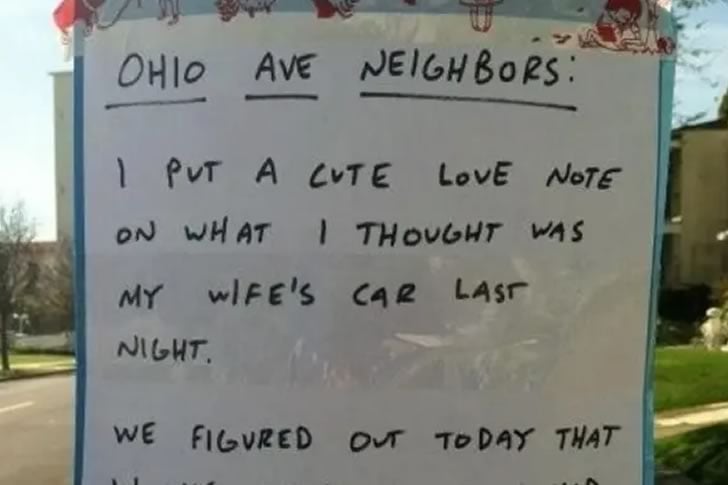 OHIO AVE NEIGHBORS:
I PUT A CUTE LOVE NOTE
ON WHAT I THOUGHT WAS
MY WIFE'S CAR LAST
NIGHT.
WE FIGURED OUT TODAY THAT